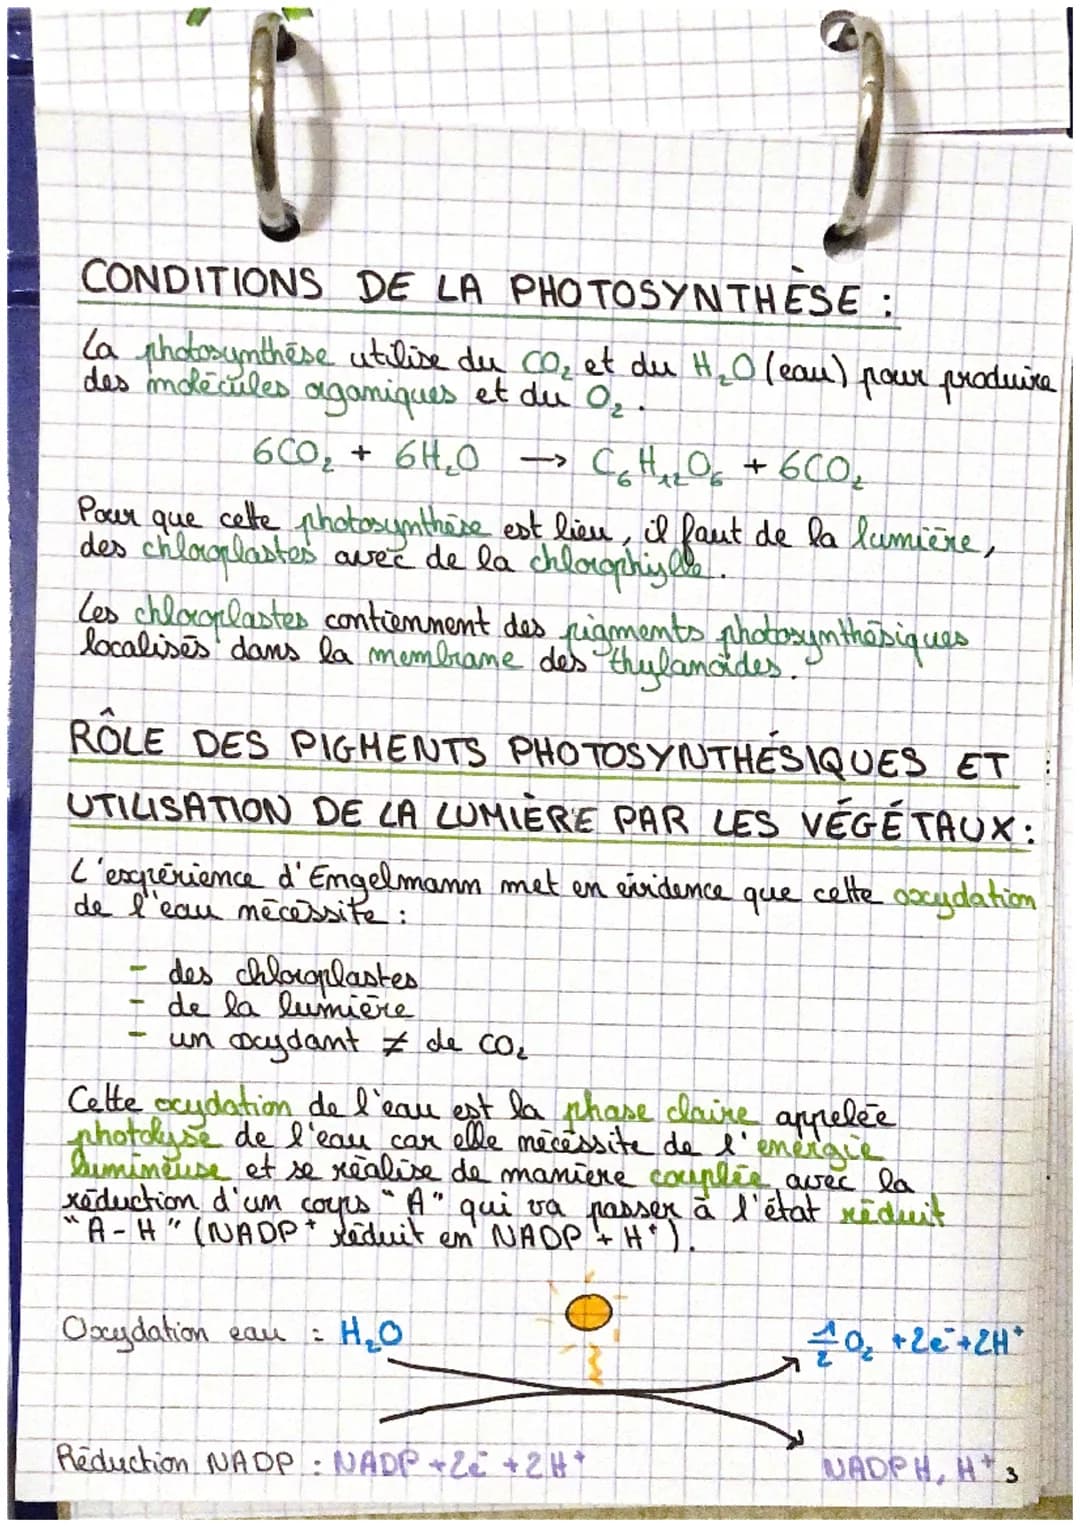 CONDITIONS DE LA PHOTOSYNTHÈSE :
La photosynthèse utilise du CO₂ et du H₂O (eau) pour produire
des molécules organiques et du O₂.
6CO₂ + 6H₂O → C₆H₁₂O₆ + 6CO₂
Pour que cette photosynthèse est lieu, il faut de la lumière,
des chloroplastes avec de la chlorophylle.
Les chloroplastes contiennent des pigments photosynthésiques
localisés dans la membrane des thylanoïdes.
RÔLE DES PIGMENTS PHOTOSYNTHÉSIQUES ET
UTILISATION DE LA LUMIÈRE PAR LES VÉGÉTAUX :
L'expérience d'Engelmann met en évidence que cette oxydation
de l'eau nécessite :
- des chloroplastes
- de la lumière
- un oxydant ≠ de CO₂
Cette oxydation de l'eau est la phase claire appelée
photolyse de l'eau car elle nécessite de l'énergie
lumineuse et se réalise de manière couplée avec la
réduction d'un corps "A" qui va passer à l'état réduit
"A-H" (NADP⁺ réduit en NADP + H⁺).
Oxydation eau : H₂O
½ O₂ + 2e⁻ + 2H⁺
Réduction NADP : NADP + 2e⁻ + 2H⁺
NADPH, H⁺
3